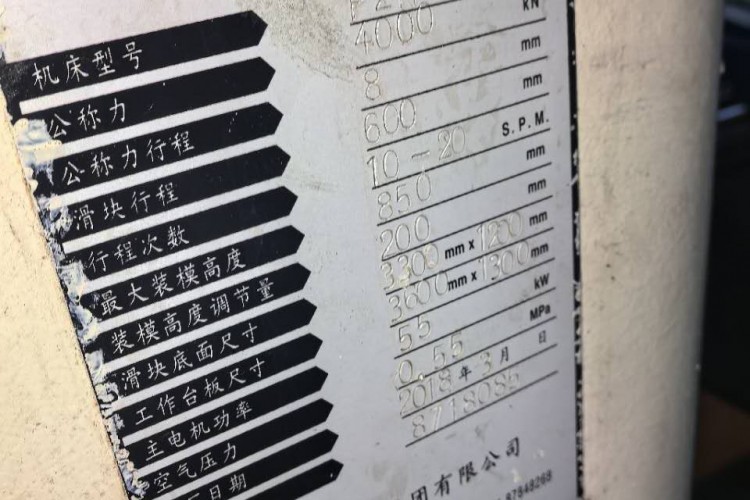 机床型号
公称力 4000 kN
公称力行程 8 mm
滑块行程 600 mm
行程次数 10-20 S.P.M.
最大装模高度 850 mm
装模高度调节量 200 mm
滑块底面尺寸 3300 mm x 1200 mm
工作台板尺寸 3600 mm x 1300 mm
主电机功率 55 kW
空气压力 0.55 MPa
日期 2018 年 3 月 日
8718085
团有限公司
87848268